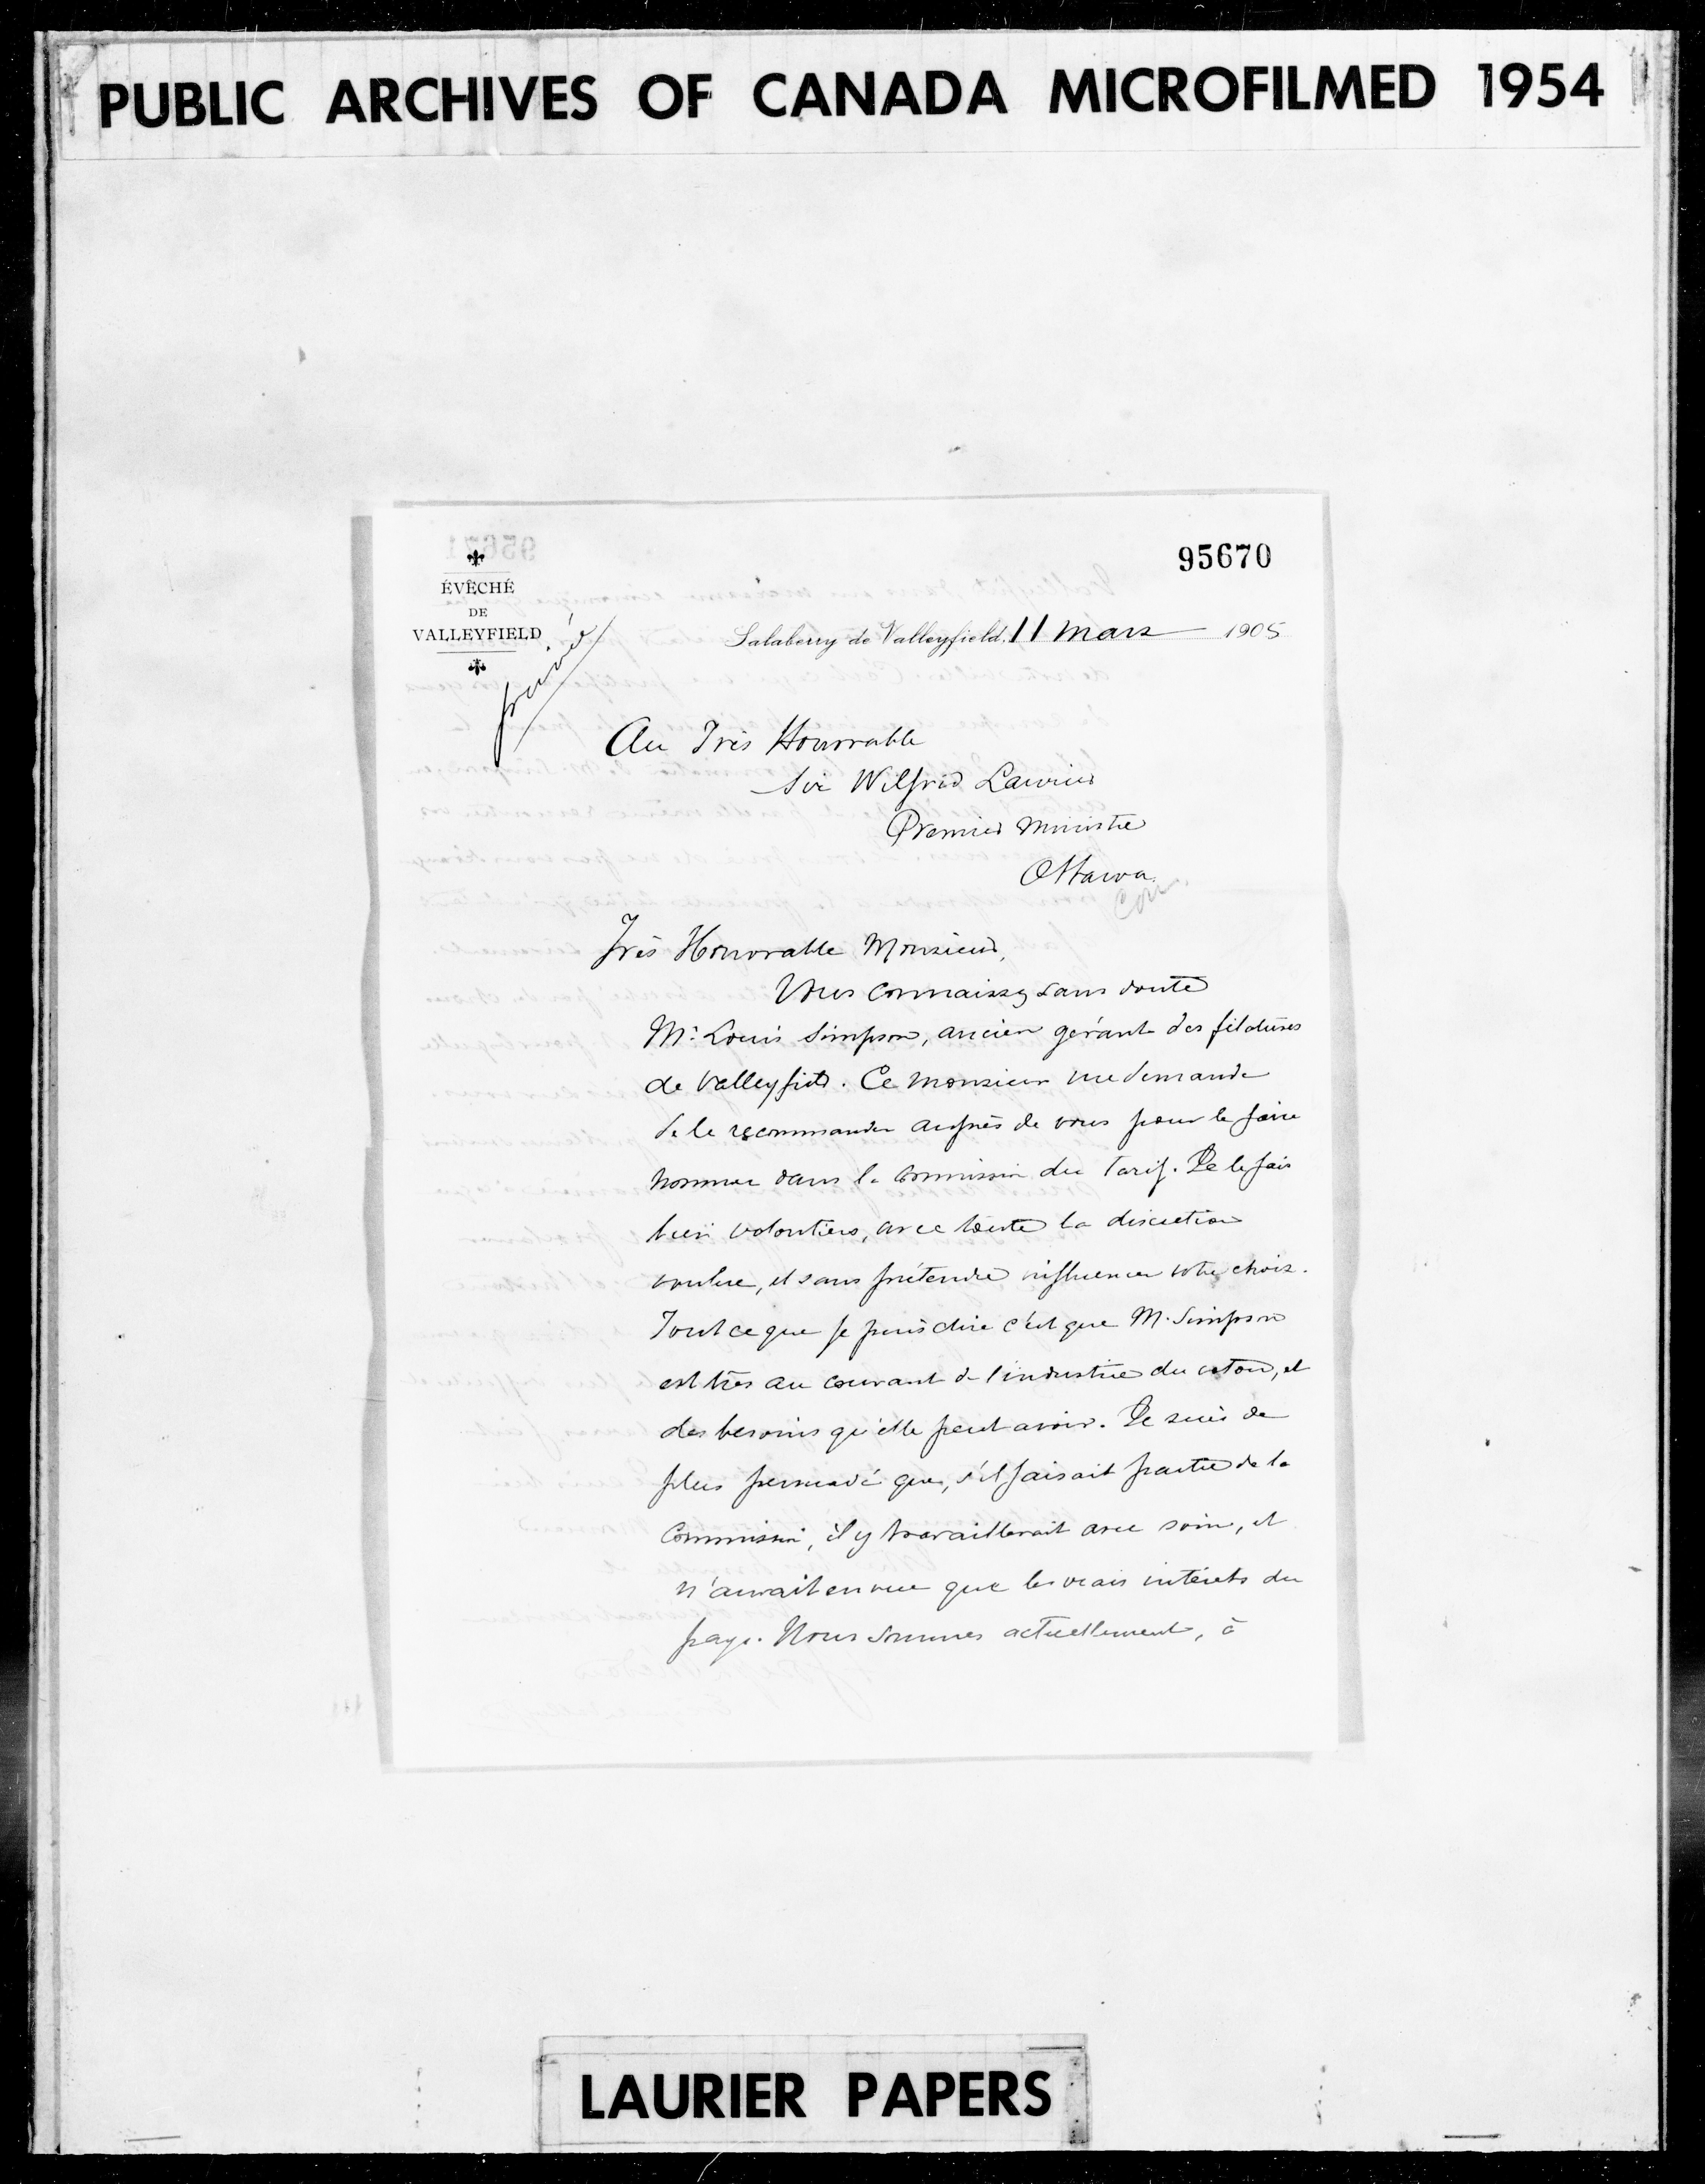 PUBLIC ARCHIVES OF CANADA MICROFILMED 1954
95670
ÉVÊCHÉ
DE
VALLEYFIELD
privée
Salaberry de Valleyfield, 11 mars 1905
Au Très Honorable
Sir Wilfrid Laurier
Premier Ministre
Ottawa.
Très Honorable Monsieur,
Vous connaissez sans doute
Mr. Louis Simpson, ancien gérant des filatures
de Valleyfield. Ce monsieur me demande
de le recommander auprès de vous pour le faire
nommer dans la Commission du Tarif. Je le fais
bien volontiers, avec toute la discrétion
voulue, et sans prétendre influencer votre choix.
Tout ce que je puis dire c'est que M. Simpson
est très au courant de l'industrie du coton, et
des besoins qu'elle peut avoir. Je suis de
plus persuadé que, s'il faisait partie de la
Commission, il y travaillerait avec soin, et
n'aurait en vue que les vrais intérêts du
pays. Nous sommes actuellement, à
LAURIER PAPERS